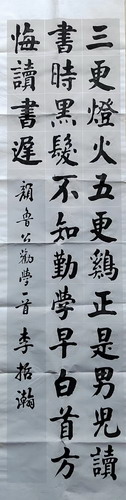 三更燈火五更鷄正是男兒讀
書時黑髮不知勤學早白首方
悔讀書遲
顏魯公勸學一首 李哲瀚